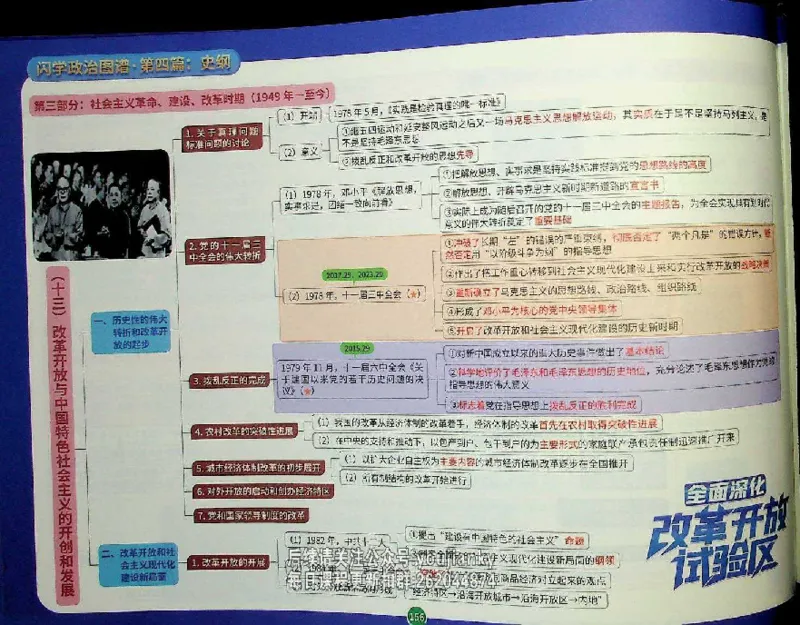 闪学政治图谱·第四篇：史纲
第三部分：社会主义革命、建设、改革时期（1949年—至今）
（十三）改革开放与中国特色社会主义的开创和发展
一、历史性的伟大
转折和改革开
放的起步
1. 关于真理问题
标准问题的讨论
（1）开始
1978年5月，《实践是检验真理的唯一标准》
（2）意义
①继五四运动和延安整风运动之后又一场马克思主义思想解放运动，其实质在于是不是坚持马列主义，是
不是坚持毛泽东思想
②拨乱反正和改革开放的思想先导
2. 党的十一届三
中全会的伟大转折
（1）1978年，邓小平《解放思想，
实事求是，团结一致向前看》
①把解放思想、实事求是坚持实践标准提到党的思想路线的高度
②解放思想，开辟马克思主义新时期新道路的宣言书
③实际上成为随后召开的党的十一届三中全会的主题报告，为全会实现具有划时代
意义的伟大转折奠定了重要基础
2017.29，2023.29
（2）1978年，十一届三中全会（★）
①冲破了长期“左”的错误的严重束缚，彻底否定了“两个凡是”的错误方针，
然否定用“以阶级斗争为纲”的指导思想
②作出了把工作重心转移到社会主义现代化建设上来和实行改革开放的战略决策
③重新确立了马克思主义的思想路线、政治路线、组织路线
④形成了邓小平为核心的党中央领导集体
⑤开启了改革开放和社会主义现代化建设的历史新时期
3. 拨乱反正的完成
2015.29
1979年11月，十一届六中全会《关
于建国以来党的若干历史问题的决
议》（★）
①对新中国成立以来的重大历史事件做出了基本结论
②科学地评价了毛泽东和毛泽东思想的历史地位，充分论述了毛泽东思想作为党的
指导思想的伟大意义
③标志着党在指导思想上拨乱反正的胜利完成
4. 农村改革的突破性进展
（1）我国的改革从经济体制的改革着手，经济体制的改革首先在农村取得突破性进展
（2）在中央的支持和推动下，以包产到户、包干到户的为主要形式的家庭联产承包责任制迅速推广开来
5. 城市经济体制改革的初步展开
（1）以扩大企业自主权为主要内容的城市经济体制改革逐步在全国推开
（2）所有制结构的改革开始进行
6. 对外开放的启动和创办经济特区
7. 党和国家领导制度的改革
二、改革开放和社
会主义现代化
建设新局面
1. 改革开放的开展
（1）1982年，中共十二大
①提出“建设有中国特色的社会主义”命题
现代化建设新局面的纲领
商品经济对立起来的观点
经济特区→沿海开放城市→沿海开放区→内地
每日课程更新扣群:262044874
全面深化
改革开放
试验区
156